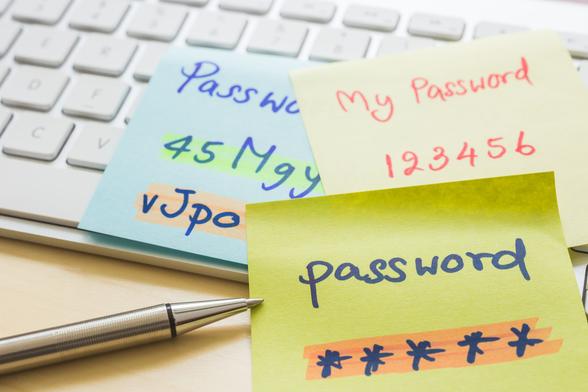 Passwo
45 Mgy
vJpo
My Password
123456
password
*****